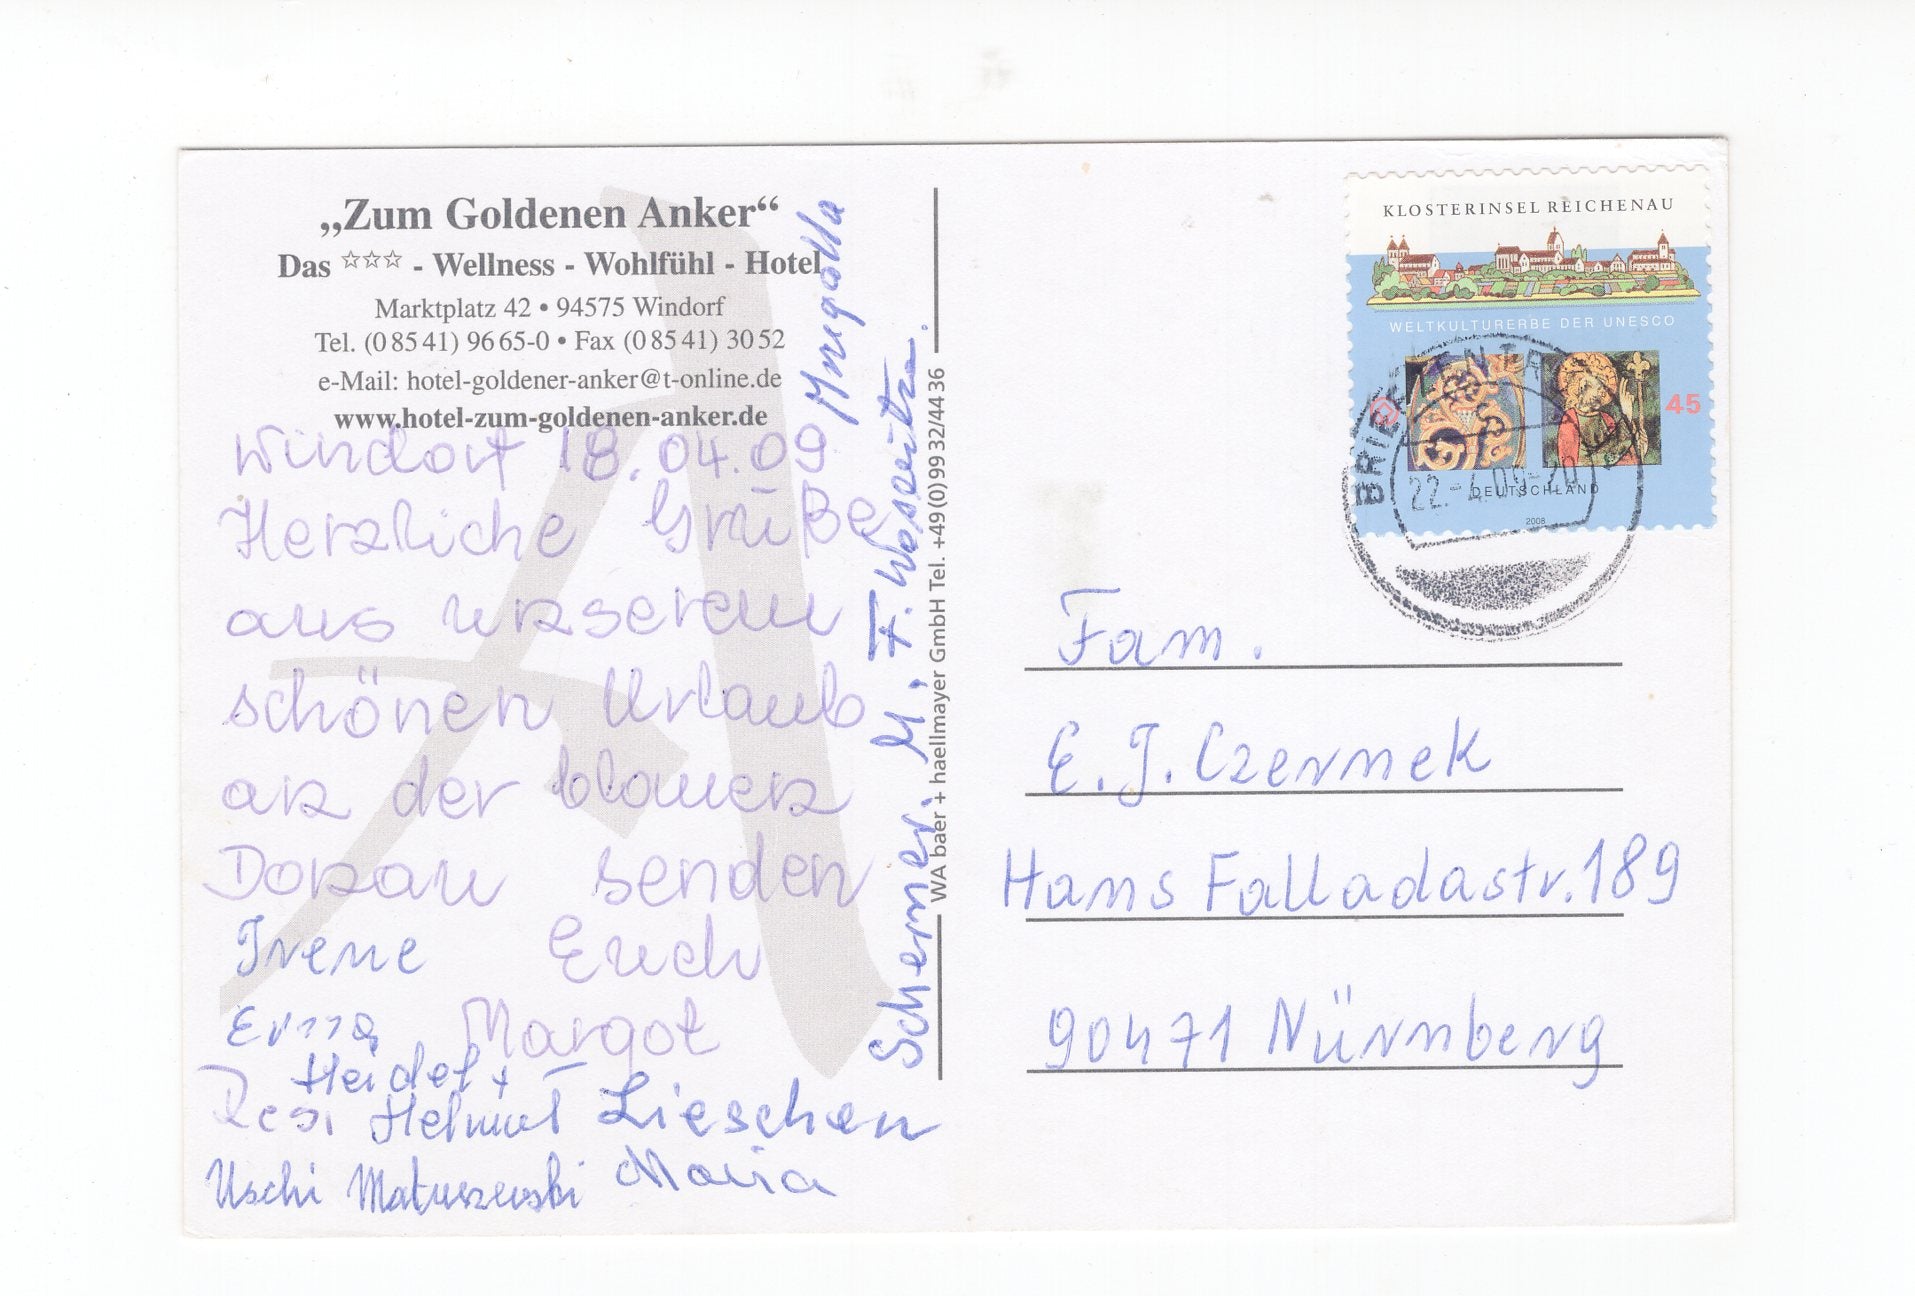 „Zum Goldenen Anker“
Das ☆☆☆ - Wellness - Wohlfühl - Hotel
Marktplatz 42 • 94575 Windorf
Tel. (0 85 41) 96 65-0 • Fax (0 85 41) 30 52
e-Mail: hotel-goldener-anker@t-online.de
www.hotel-zum-goldenen-anker.de
Windorf 18.04.09
Herzliche Grüße
aus unserem
schönen Urlaub
an der blauen
Donau senden
Irene Euch
Erna Margot
Heidel +
Resi Helmut Lieschen
Uschi Matuszewski Maria
Schemer. M. F.
WA baer + haellmayer GmbH Tel. +49 (0) 99 32/44 36
KLOSTERINSEL REICHENAU
WELTKULTURERBE DER UNESCO
45
DEUTSCHLAND
2008
BRIEFZENTRUM
22.-4.09-20
Fam.
E. J. Czernek
Hans Falladastr. 189
90471 Nürnberg